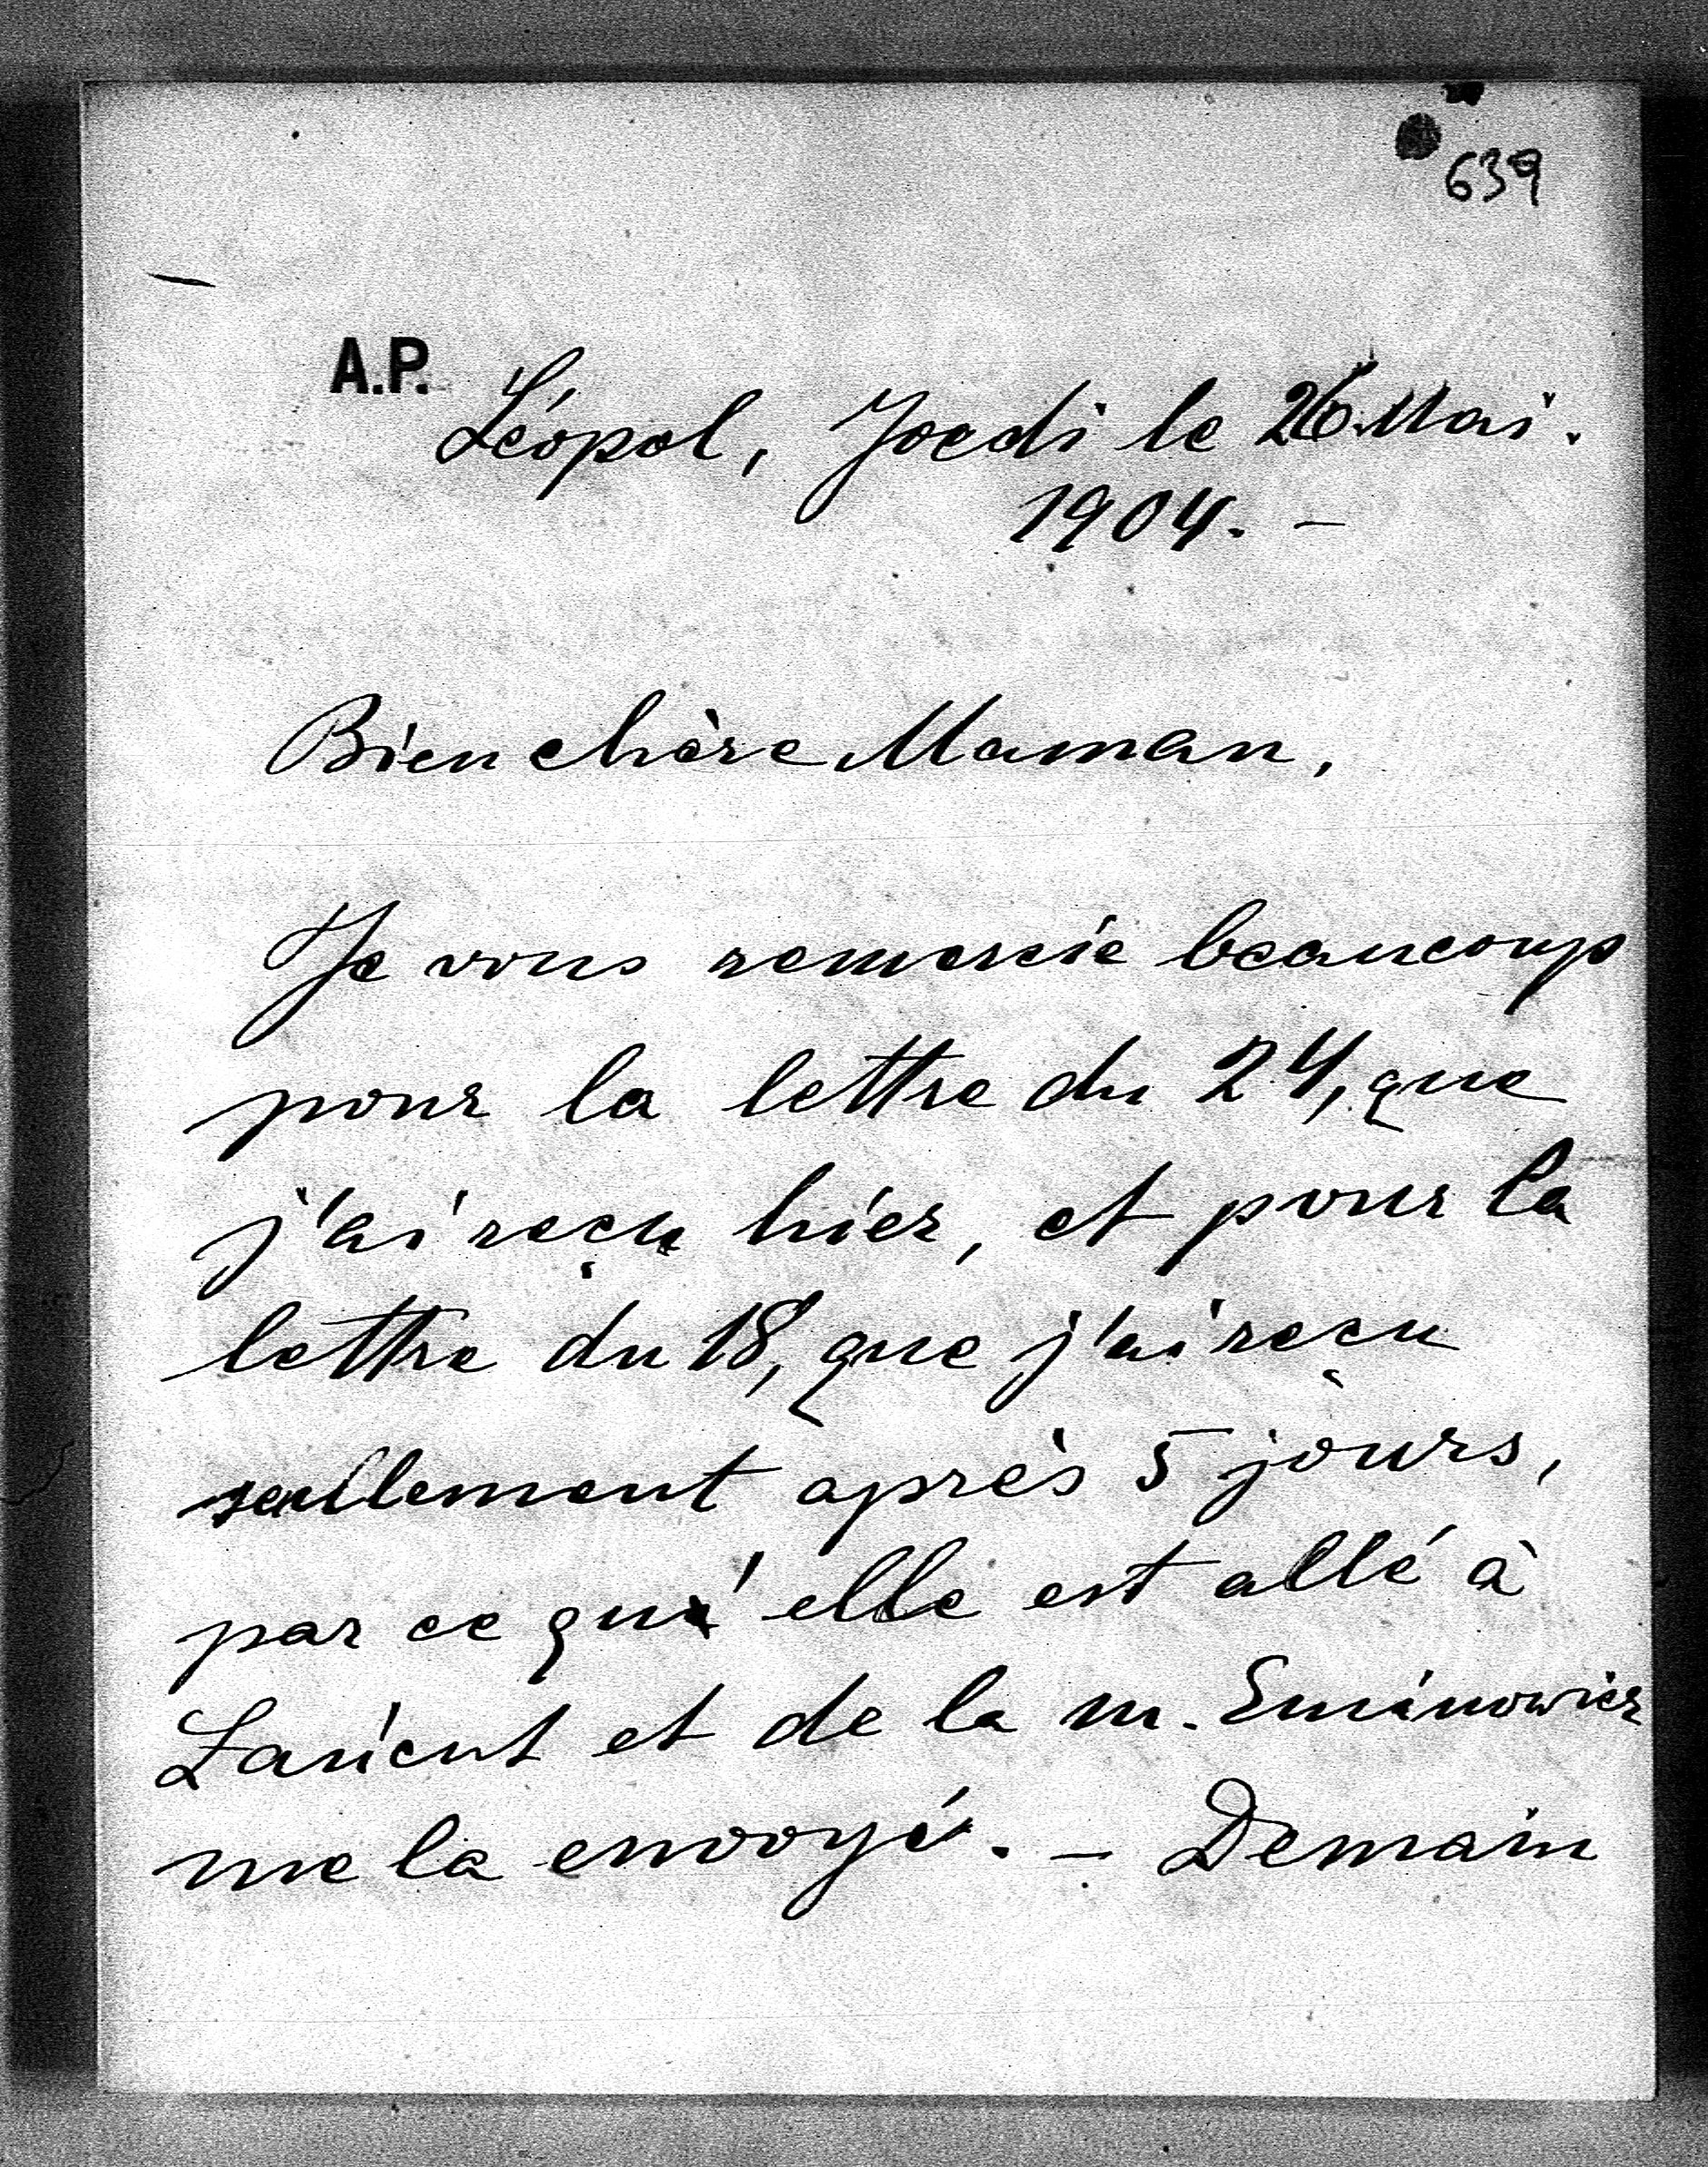 639
A.P.
Léopol, Joedi le 26. Mai.
1904. –
Bien chère Maman,
Je vous remercie beaucoup
pour la lettre du 24, que
j'ai reçu hier, et pour la
lettre du 18, que j'ai reçu
seullement après 5 jours,
par ce qu' elle est allé à
Łańcut et de la m. Eminowicz
me la envoyé. – Demain